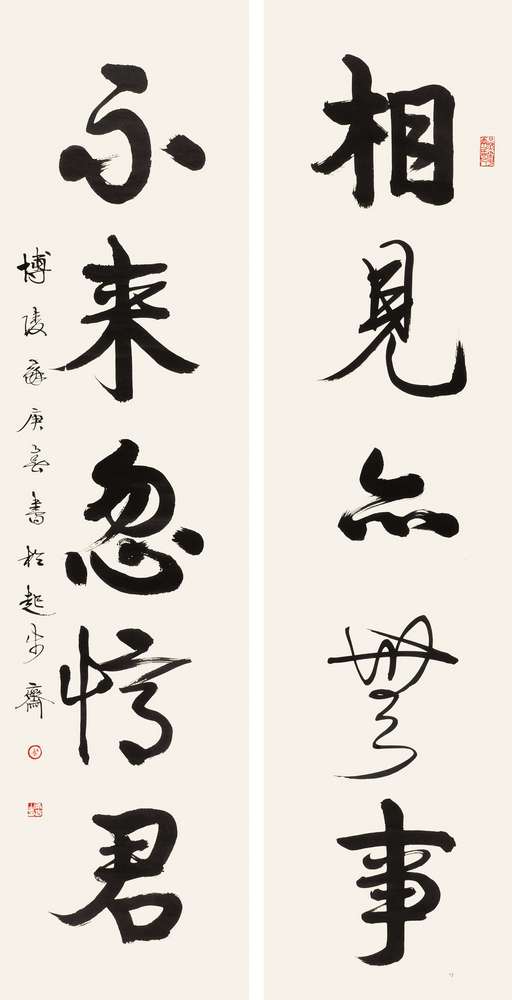 相見亦無事
不来忽憶君
博陵 庚 書於起步齋